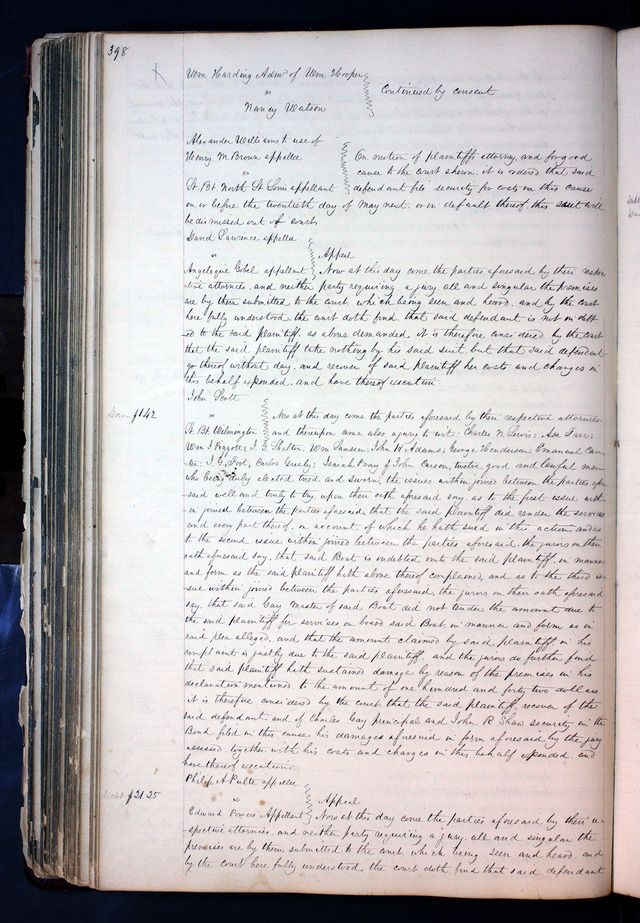 398
Wm Harding Admr of Wm Hooper
vs
Continued by consent
Nancy Watson
Alexander Williams to use of
Henry M Brown appellee
On motion of plaintiffs attorney, and for good
vs
cause to the court shewn, it is ordered that said
St Bt North St Louis appellant
defendant file security for costs in this cause
on or before the twentieth day of May next, or in default thereof, this suit will
be dismissed out of court
David Lawrence appellee
vs
Appeal
Angelique Gobel appellant
Now at this day come the parties aforesaid by their respec
tive attornies, and neither party requiring a jury, all and singular the premises
are by them submitted to the court, which being seen and heard, and by the court
here fully understood, the court doth find that said defendant is not in debt
ed to the said plaintiff, as above demanded, it is therefore considered by the court
that the said plaintiff take nothing by his said suit, but that said defendant
go thereof without day, and recover of said plaintiff her costs and charges in
this behalf expended, and have thereof execution
John Scott
$142
vs
Now at this day come the parties aforesaid by their respective attornies
St Bt Wilmington
and thereupon came also a jury to wit: Charles N Lewis; Asa Farr;
Wm T Piggott; J. G. Shelton; Wm Sansen; John H Adams; George Henderson; Emanuel Car
ter; J. G. Foot; Carlos Greely; Isaiah Poag & John Carson, twelve good and lawful men
who being duly elected tried and sworn, the issues within joined between the parties afore
said well and truly to try, upon their oath aforesaid say, as to the first issue with
in joined between the parties aforesaid, that the said plaintiff did render the services
and every part thereof, on account of which he hath sued in this action, and as
to the second issue within joined between the parties aforesaid, the jurors on their
oath aforesaid say, that said Boat is indebted unto the said plaintiff, in manner
and form as the said plaintiff hath above thereof complained, and as to the third is
sue within joined between the parties aforesaid, the jurors on their oath aforesaid
say, that said Gay Master of said Boat did not tender the amount due to
the said plaintiff for services on board said Boat, in manner and form as in
said plea alleged, and that the amount claimed by said plaintiff in his
complaint is justly due to the said plaintiff, and the jurors do further find
that said plaintiff hath sustained damage by reason of the premises in his
declaration mentioned, to the amount of one hundred and forty two dollars
it is therefore considered by the court that the said plaintiff recover of the
said defendant and of Charles Gay principal and John R Shaw security in the
Bond filed in this cause, his damages aforesaid in form aforesaid by the jury
assessed, together with his costs and charges in this behalf expended, and
have thereof execution
Philip A Pulte appellee
$21.25
vs
Appeal
Edward Powers Appellant
Now at this day come the parties aforesaid by their re
spective attornies, and neither party requiring a jury, all and singular the
premises are by them submitted to the court, which being seen and heard, and
by the court here fully understood, the court doth find that said defendant